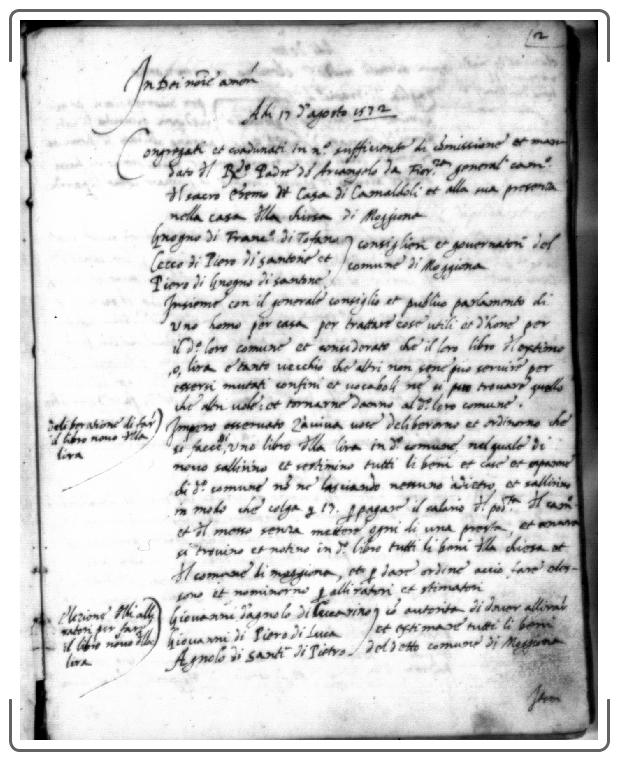 2
In Dei noīe amen
Adi 17 d'agosto 1572
Congregati et coadunati in n.º sufficiente di cōmissione et man
dato del R.do Padre dō Arcangelo da Fior.za general cam.º
del sacro Eremo et Casa di Camaldoli et alla sua presenza
nella casa della chiesa di Moggiona
Gnogno di Franc.º di Tofano
Cecco di Piero di santone et
Piero di Gnogno di santone
consiglieri et governatori del
comune di Moggiona
Insieme con il generale consiglio et publico parlamento di
uno homo per casa per trattare cose utili et d'hone per
il d.º loro comune et considerato che il loro libro del estimo
o, lira è tanto vecchio che altri non sene può servire per
essersi mutati confini et vocaboli ne si può trovare quello
che altri vole et tornarne danno al d.º loro comune.
deliberazione di far
il libro novo della
lira
Impero osservato l'aviva voce deliberorno et ordinorno che
si facci uno libro della lira in d.º comune, nel quale di
novo sallirino et sestimino tutti li beni et case et
di d.º comune nō ne lasciando nessuno indietro, et sallirino
in modo che colga 17. p pagare il salario del pod.ta del cam.º
et del messo senza mettere ogni di una presta, et
si trovino et notino in d.º libro tutti li beni della chiesa et
del comune di moggiona, etc p dare ordine accio fare eles-
sono et nominorno p alliratori et stimatori
Elezione delli alli
ratori per fare
il libro novo della
lira
Giovanni d'agnolo di Ceccarino
Giovanni di Piero di Luca
Agnolo di Santi di Pietro
cō autorita di dover allirare
et estimare tutti li beni
del detto comune di Moggiona
Item